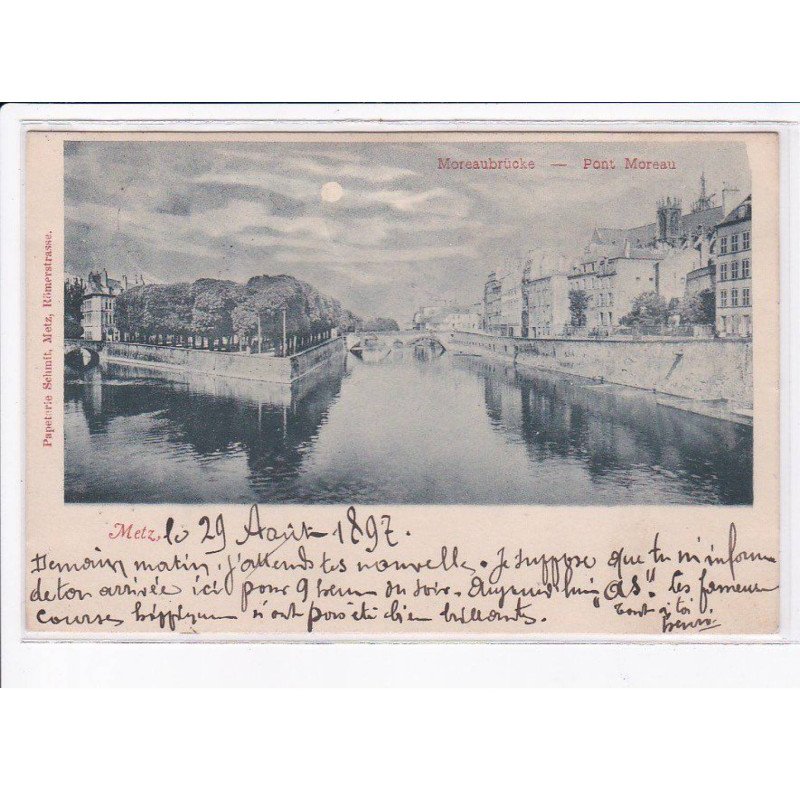 Moreaubrücke — Pont Moreau
Papeterie Schmit, Metz, Römerstrasse.
Metz, le 29 Août 1897.
Demain matin, j'attends tes nouvelles. Je suppose que tu m'informe
de ton arrivée ici pour 9 heures du soir. Aujourd'hui "as" les fameuses
courses hippiques n'ont pas été bien brillantes.
tout à toi
Henri